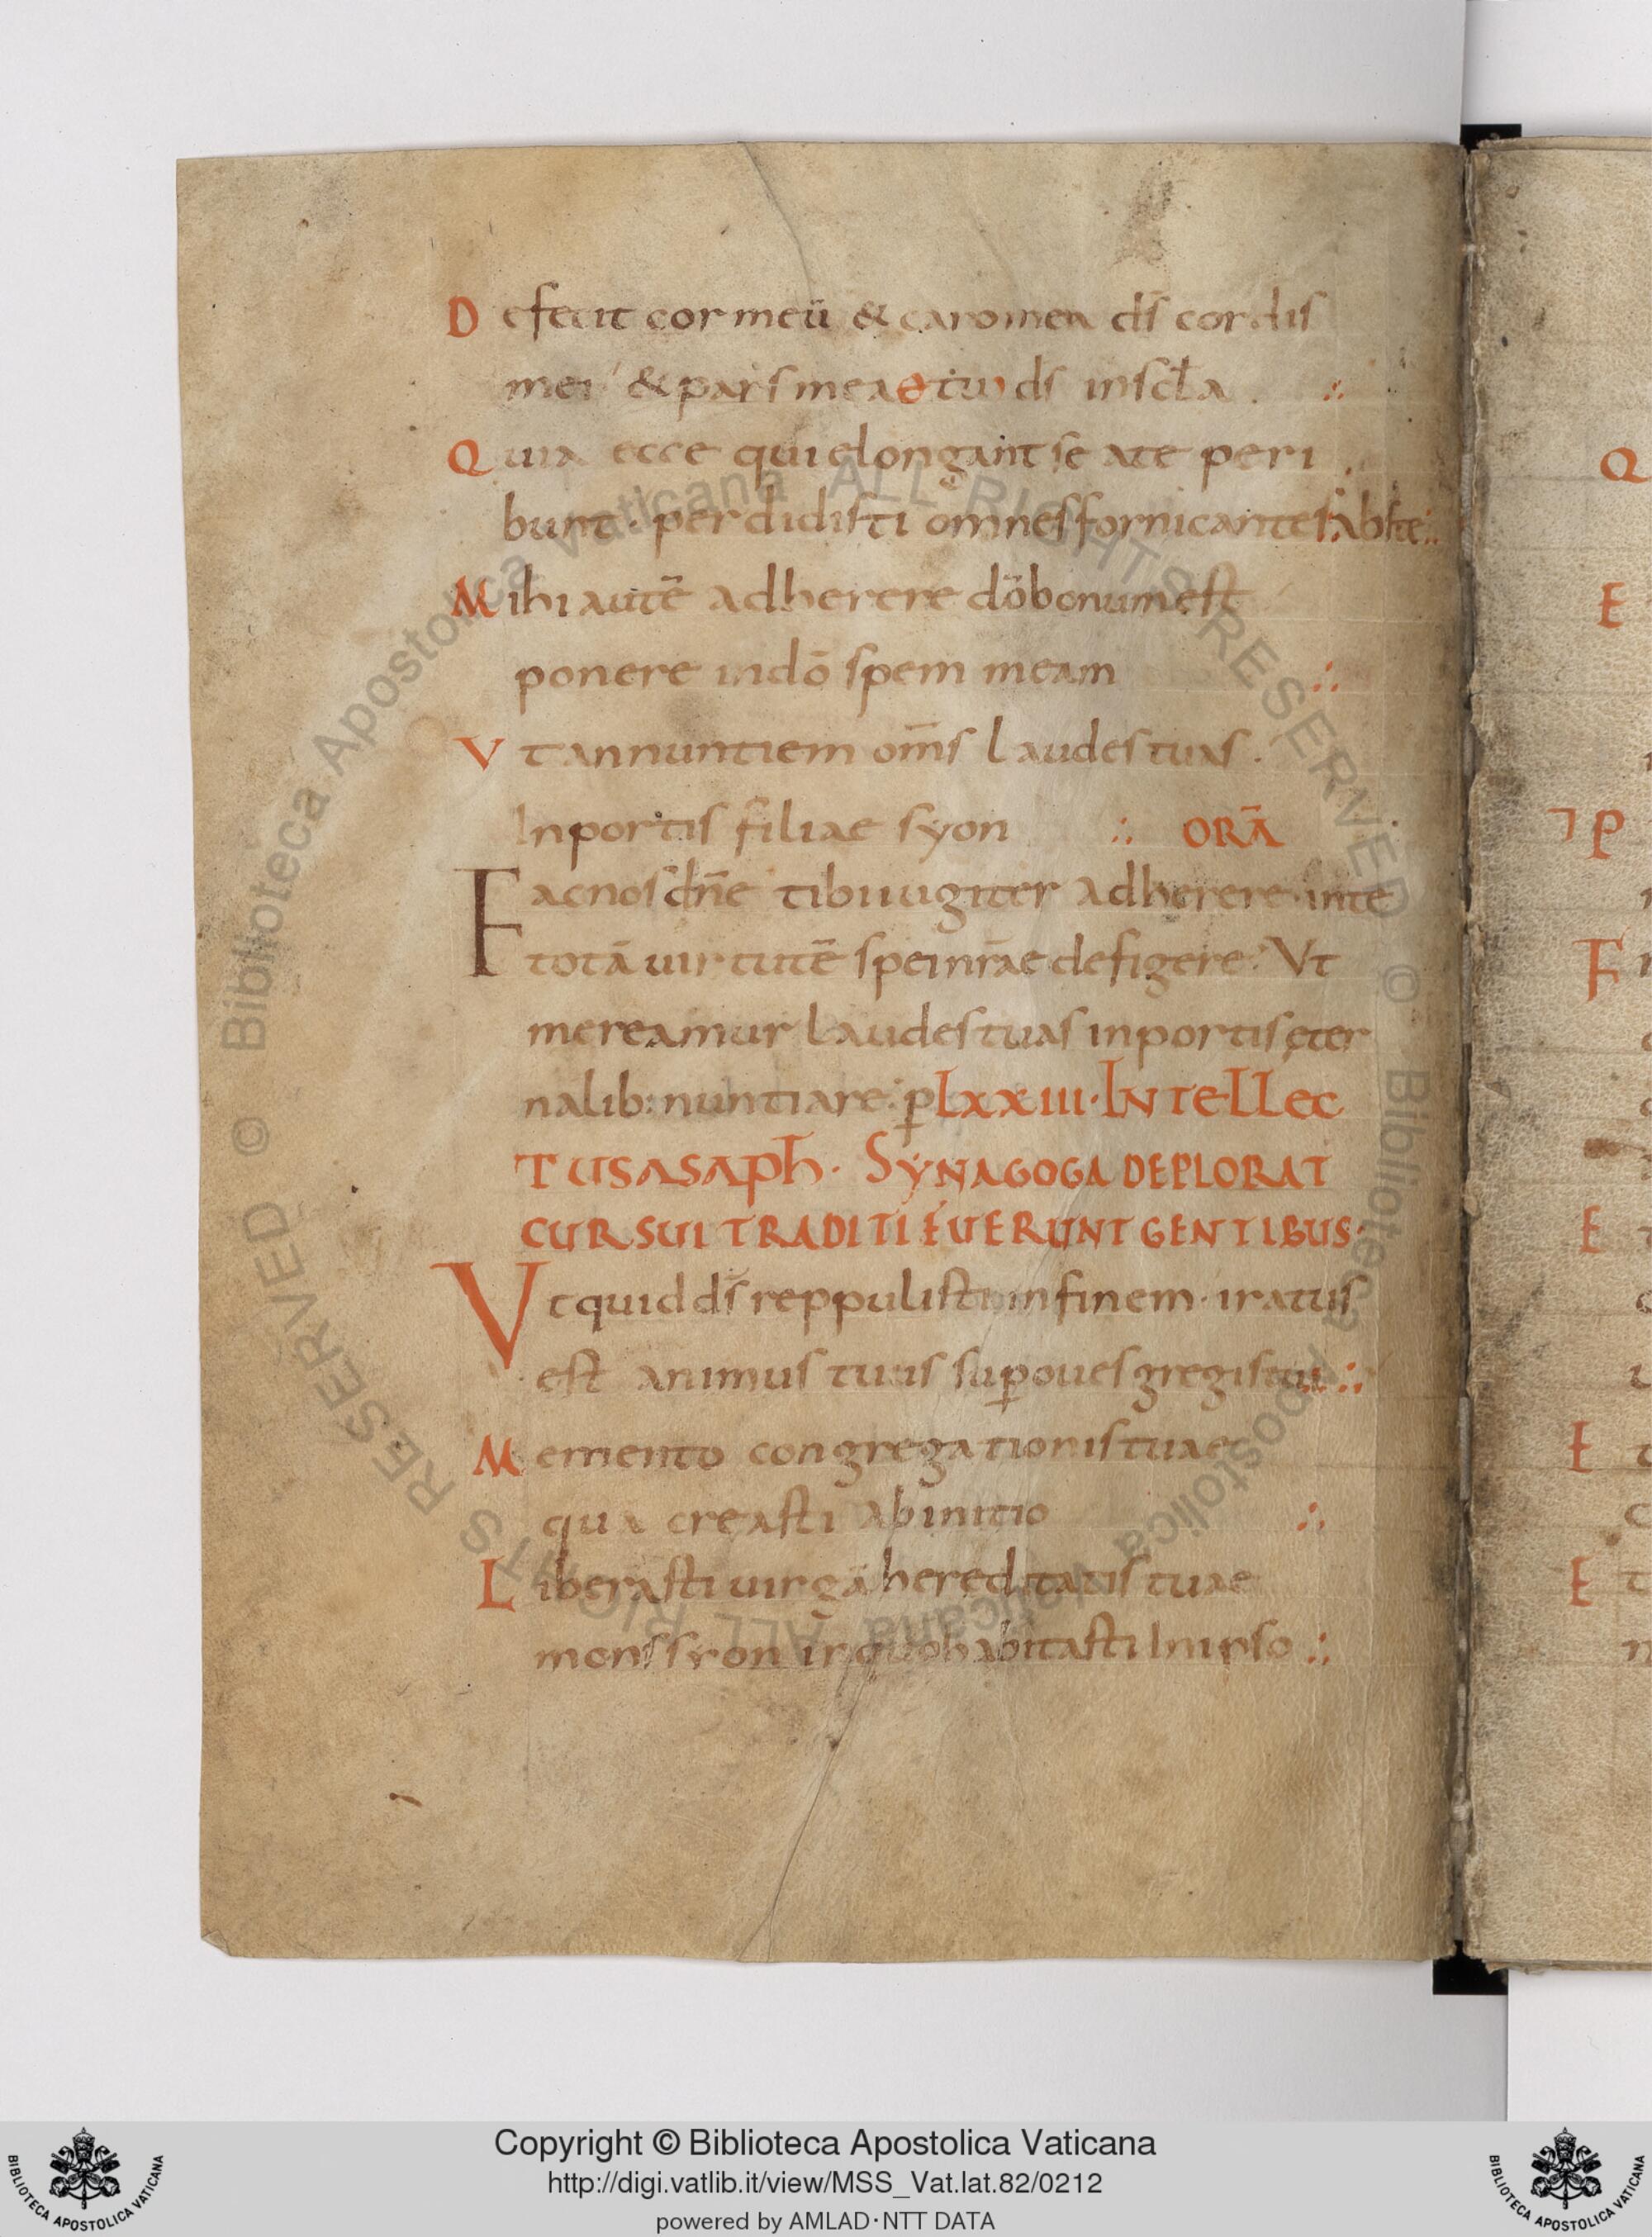 Defecit cor meū & caro mea dš cordis
mei & pars mea dš in scła .
Quia ecce qui elongant se a te peri
bunt · perdidisti omnes fornicantes abs te
Mihi autē adherere dō bonum est
ponere in dō spem meam
Vt annuntiem om̄s laudes tuas .
In portis filiae syon ORĀ
Fac nos dn̄e tibi iugiter adherere · in te
totā uirtutē spei nr̄ae defigere : Vt
mereamur laudes tuas in portis ęter
nalib: nuntiare : ꝑ LXXIII · INTELLEC
TUS ASAPH · SYNAGOGA DEPLORAT
CUR SUI TRADITI FUERUNT GENTIBUS ·
Vt quid dš reppulisti in finem · iratus
est animus tuus suꝑ oues gregis tui
Memento congregationis tuae
qua creasti ab initio
Liberasti uirgā hereditatis tuae
mons syon in quo habitasti In ipso
Q
E
P
F
E
E
E
© Biblioteca Apostolica Vaticana ALL RIGHTS RESERVED © Biblioteca Apostolica Vaticana ALL RIGHTS RESERVED
Copyright © Biblioteca Apostolica Vaticana
http://digi.vatlib.it/view/MSS_Vat.lat.82/0212
powered by AMLAD·NTT DATA
BIBLIOTECA APOSTOLICA VATICANA
BIBLIOTECA APOSTOLICA VATICANA